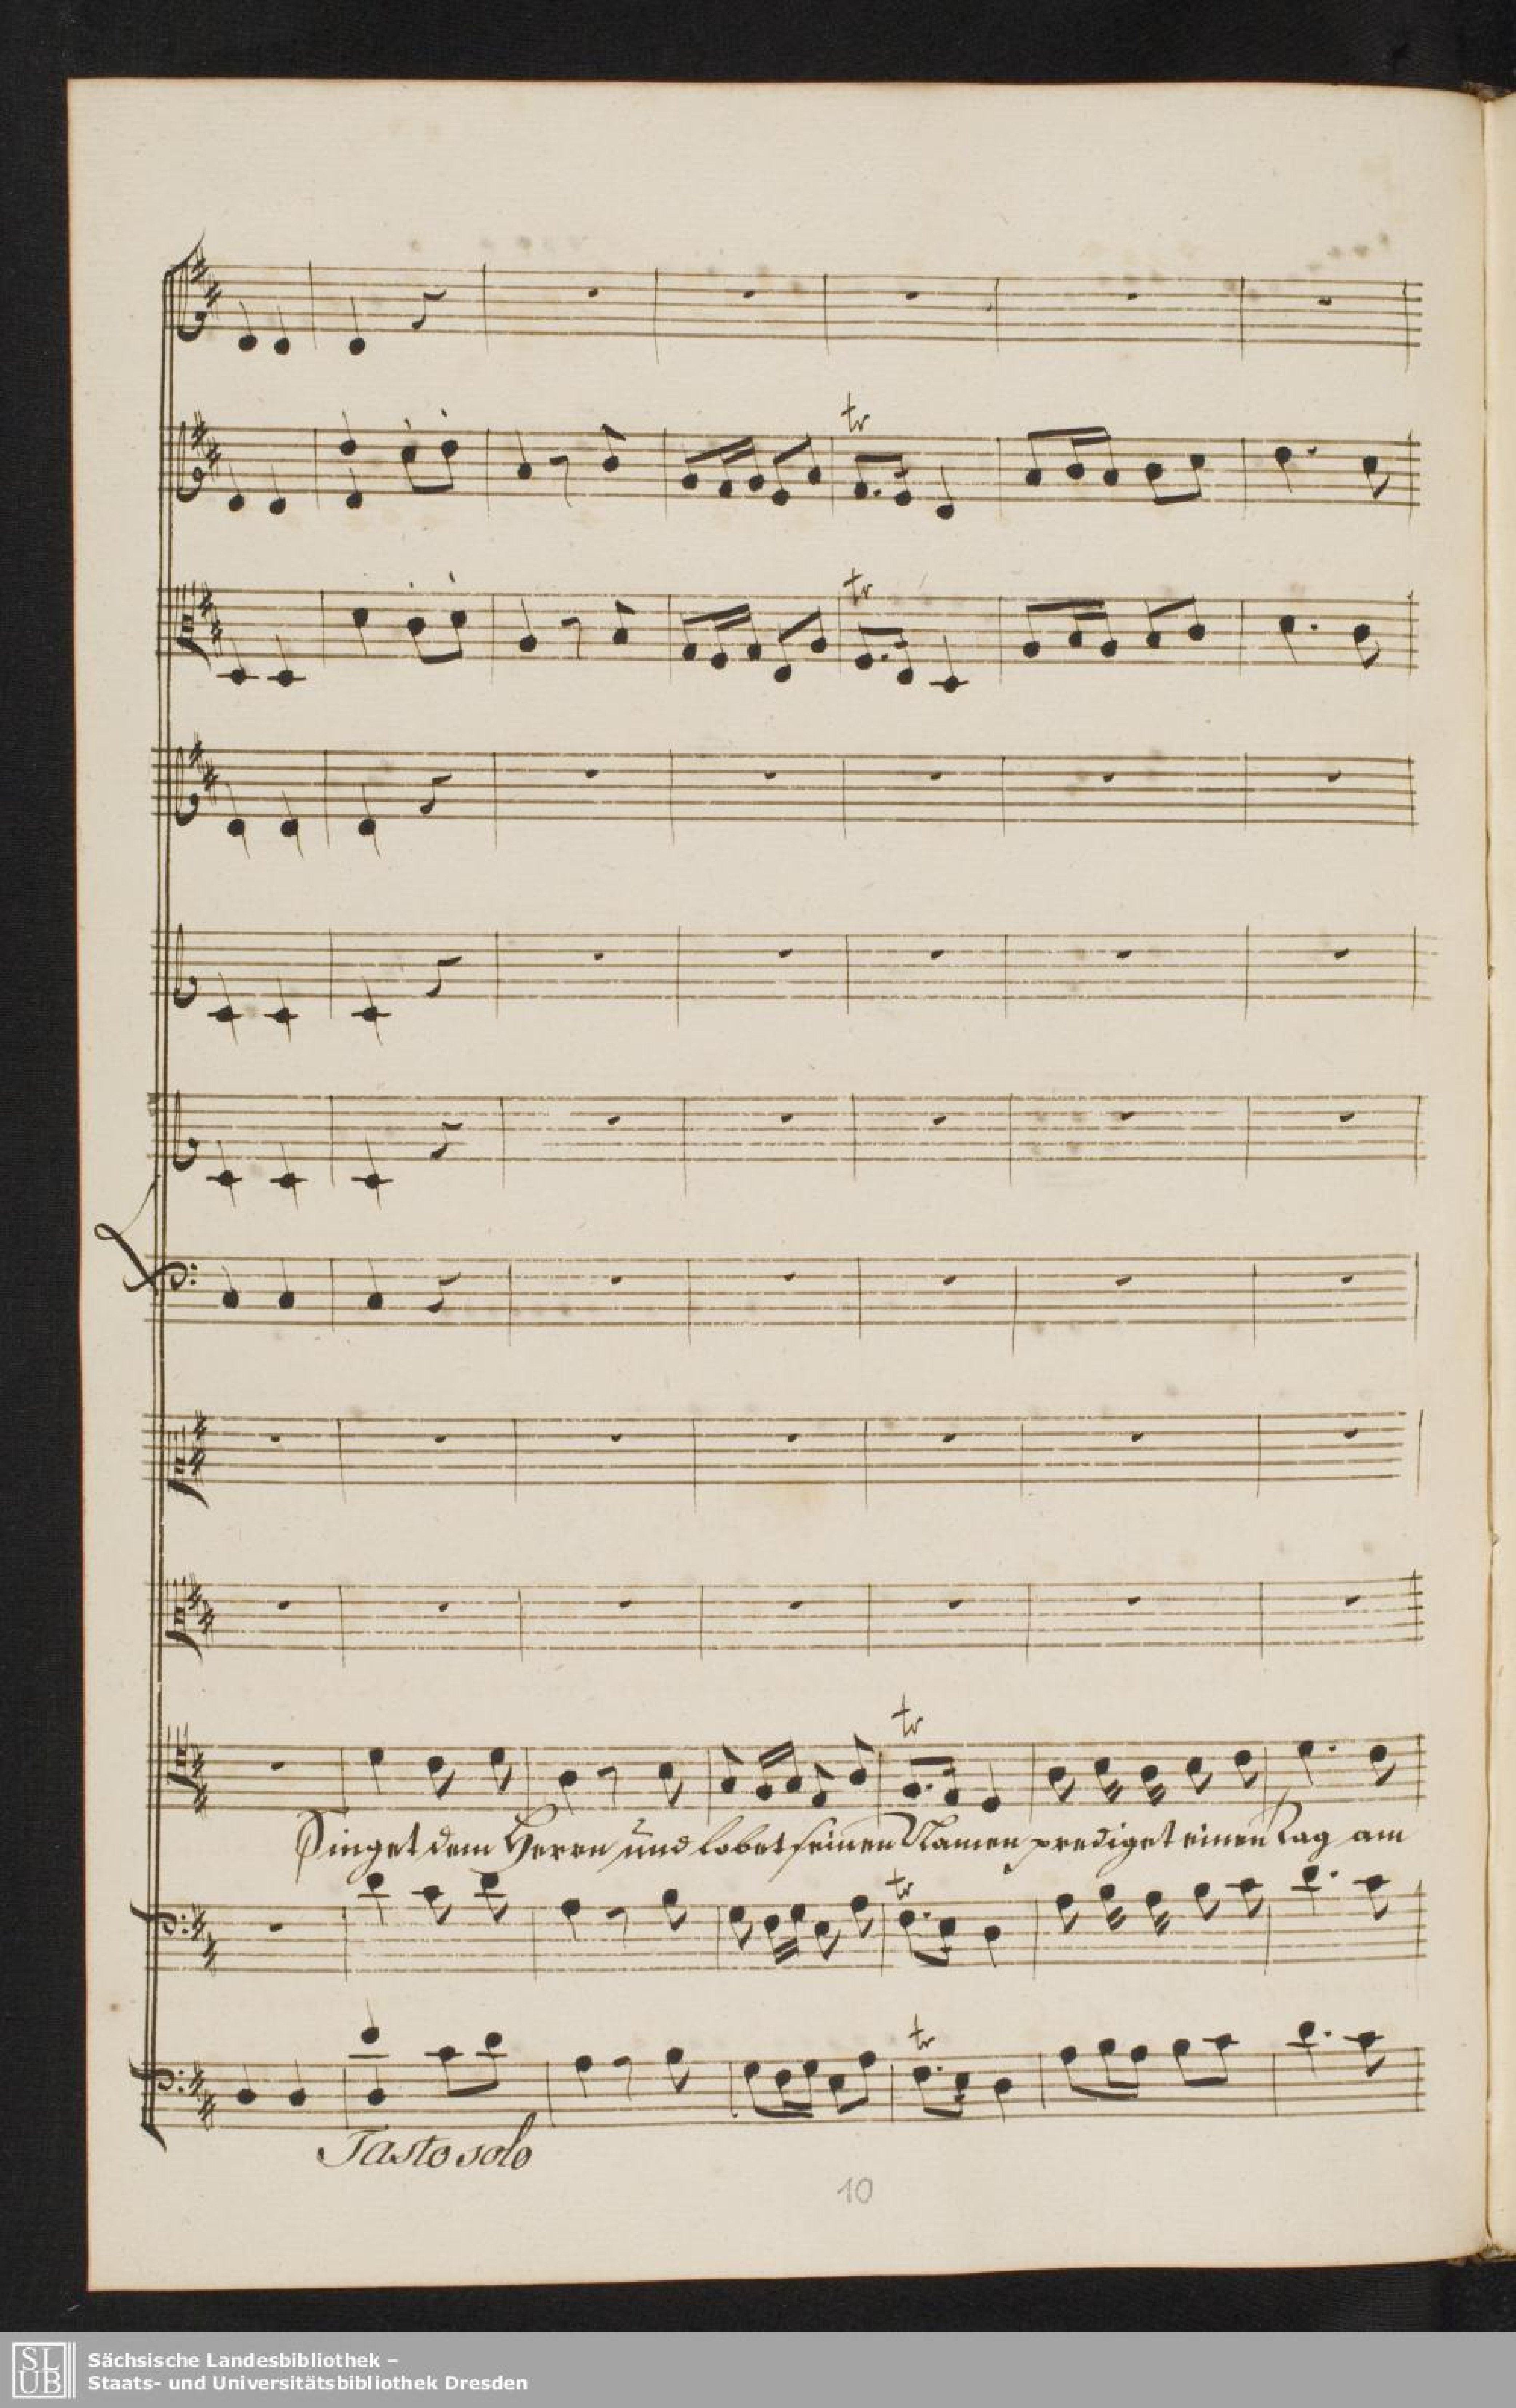 tr
tr
tr
Singet dem Herrn und lobet seinen Namen prediget einen Tag am
tr
tr
Tasto solo
10
SLUB
Sächsische Landesbibliothek –
Staats- und Universitätsbibliothek Dresden